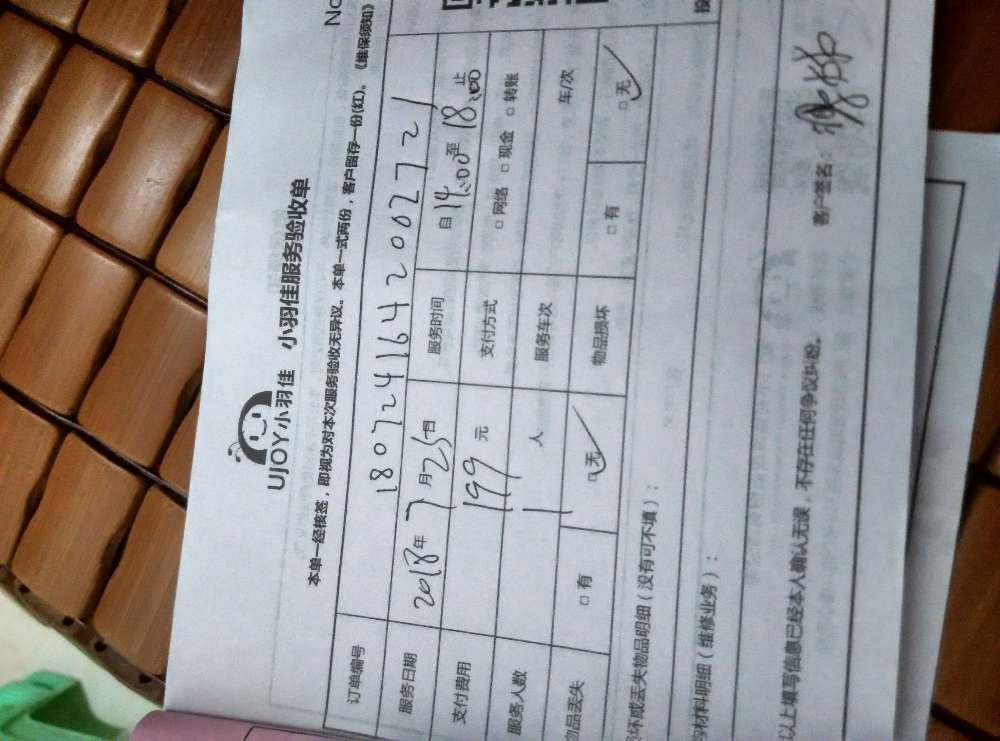 No
UJOY小羽佳 小羽佳服务验收单
本单一经核签，即视为对本次服务验收无异议。本单一式两份，客户留存一份(红)。《维保须知》
订单编号 1807241642002721
服务日期 2018年7月25日 服务时间 自14:00至18:00止
支付费用 199元 支付方式 □网络 □现金 □转账
服务人数 1人 服务车次 车/次
物品丢失 □有 □无✓ 物品损坏 □有 □无✓
损坏或丢失物品明细（没有可不填）：
材料明细（维修业务）：
以上填写信息已经本人确认无误，不存在任何争议纠纷。 客户签名：